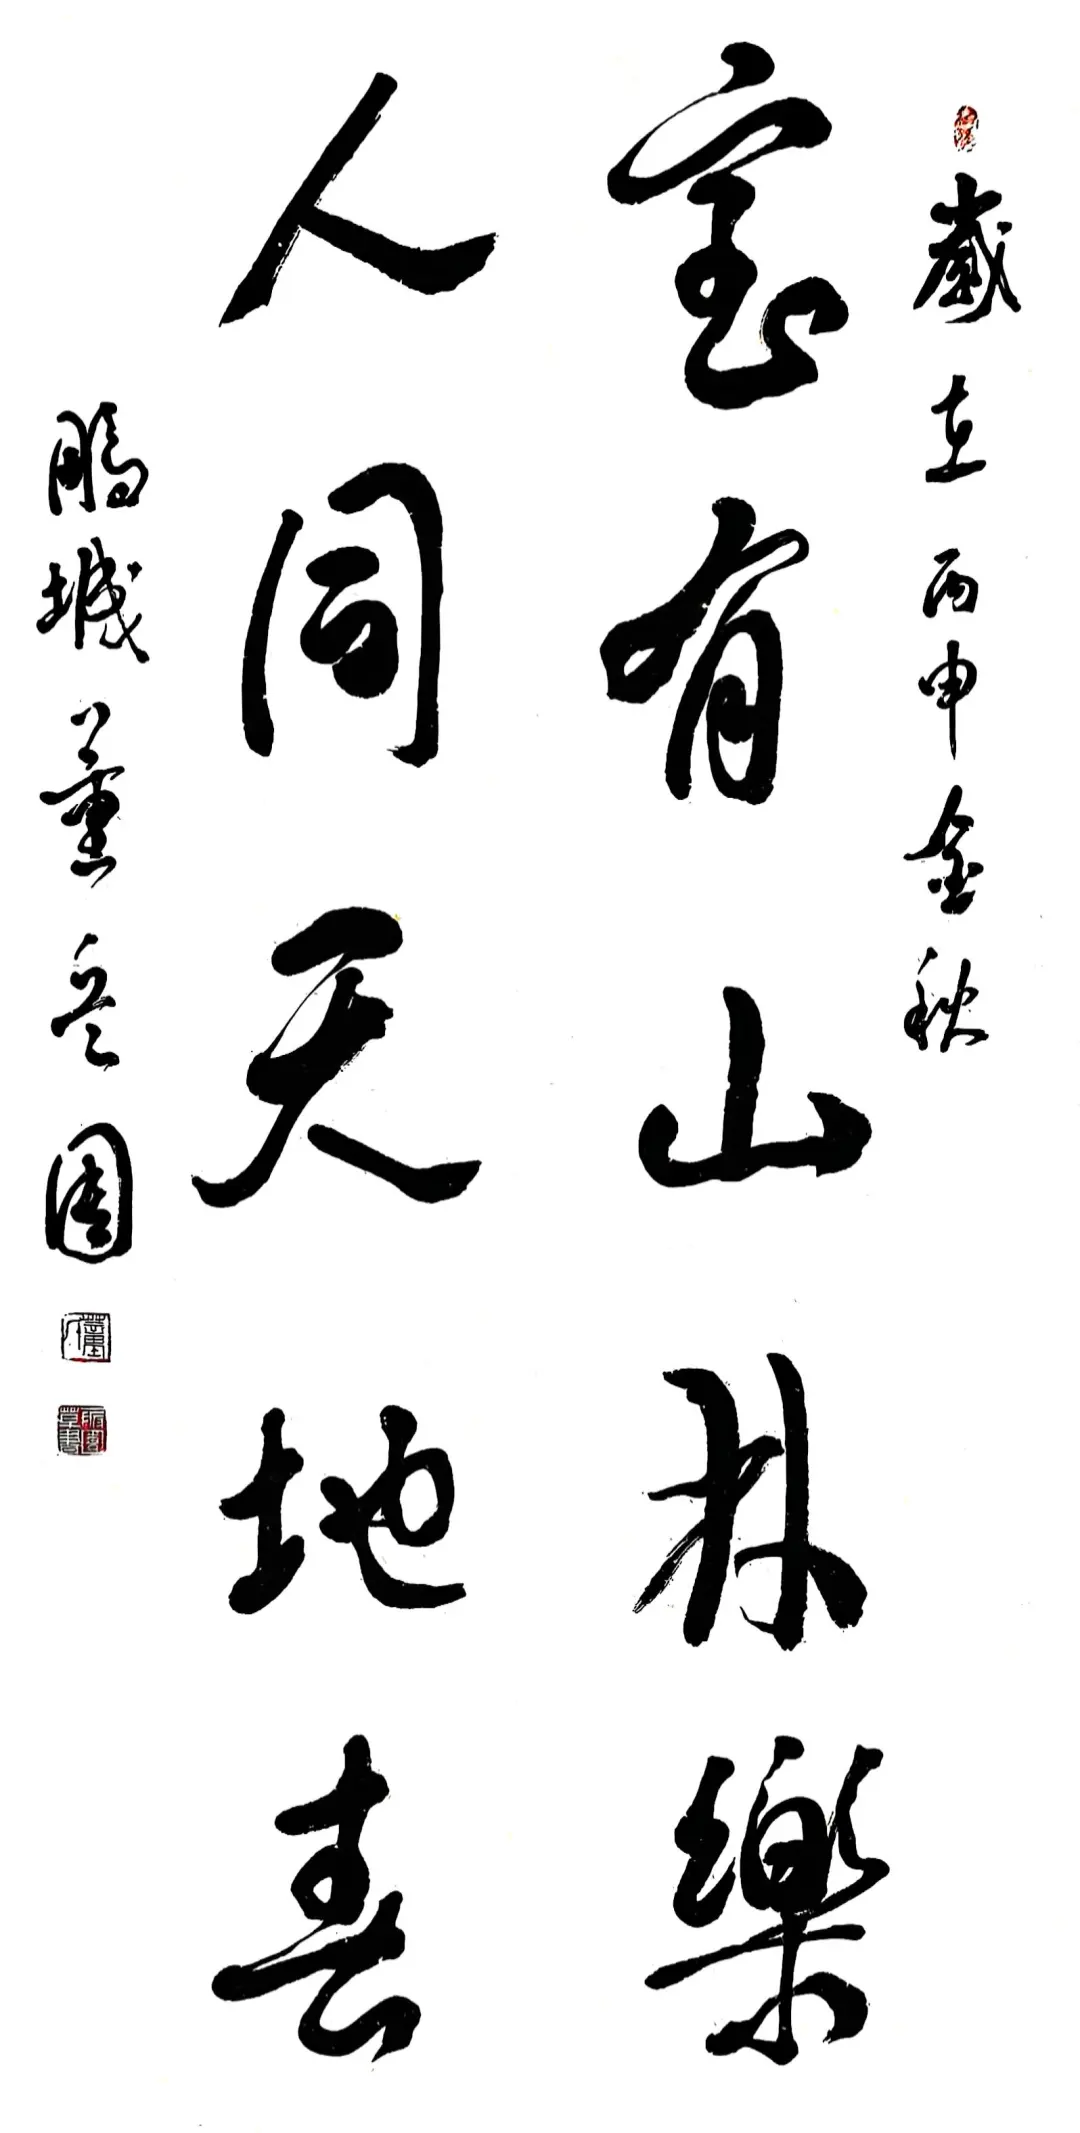 歲在丙申金秋
室有山林樂
人同天地春
鵬城董